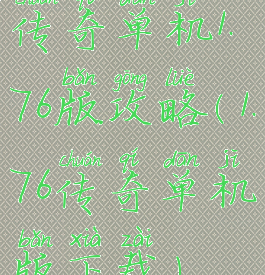 chuán qí dān jī
传奇单机1.
bǎn gōng lüè
76版攻略(1.
chuán qí dān jī
76传奇单机
bǎn xià zǎi
版下载)